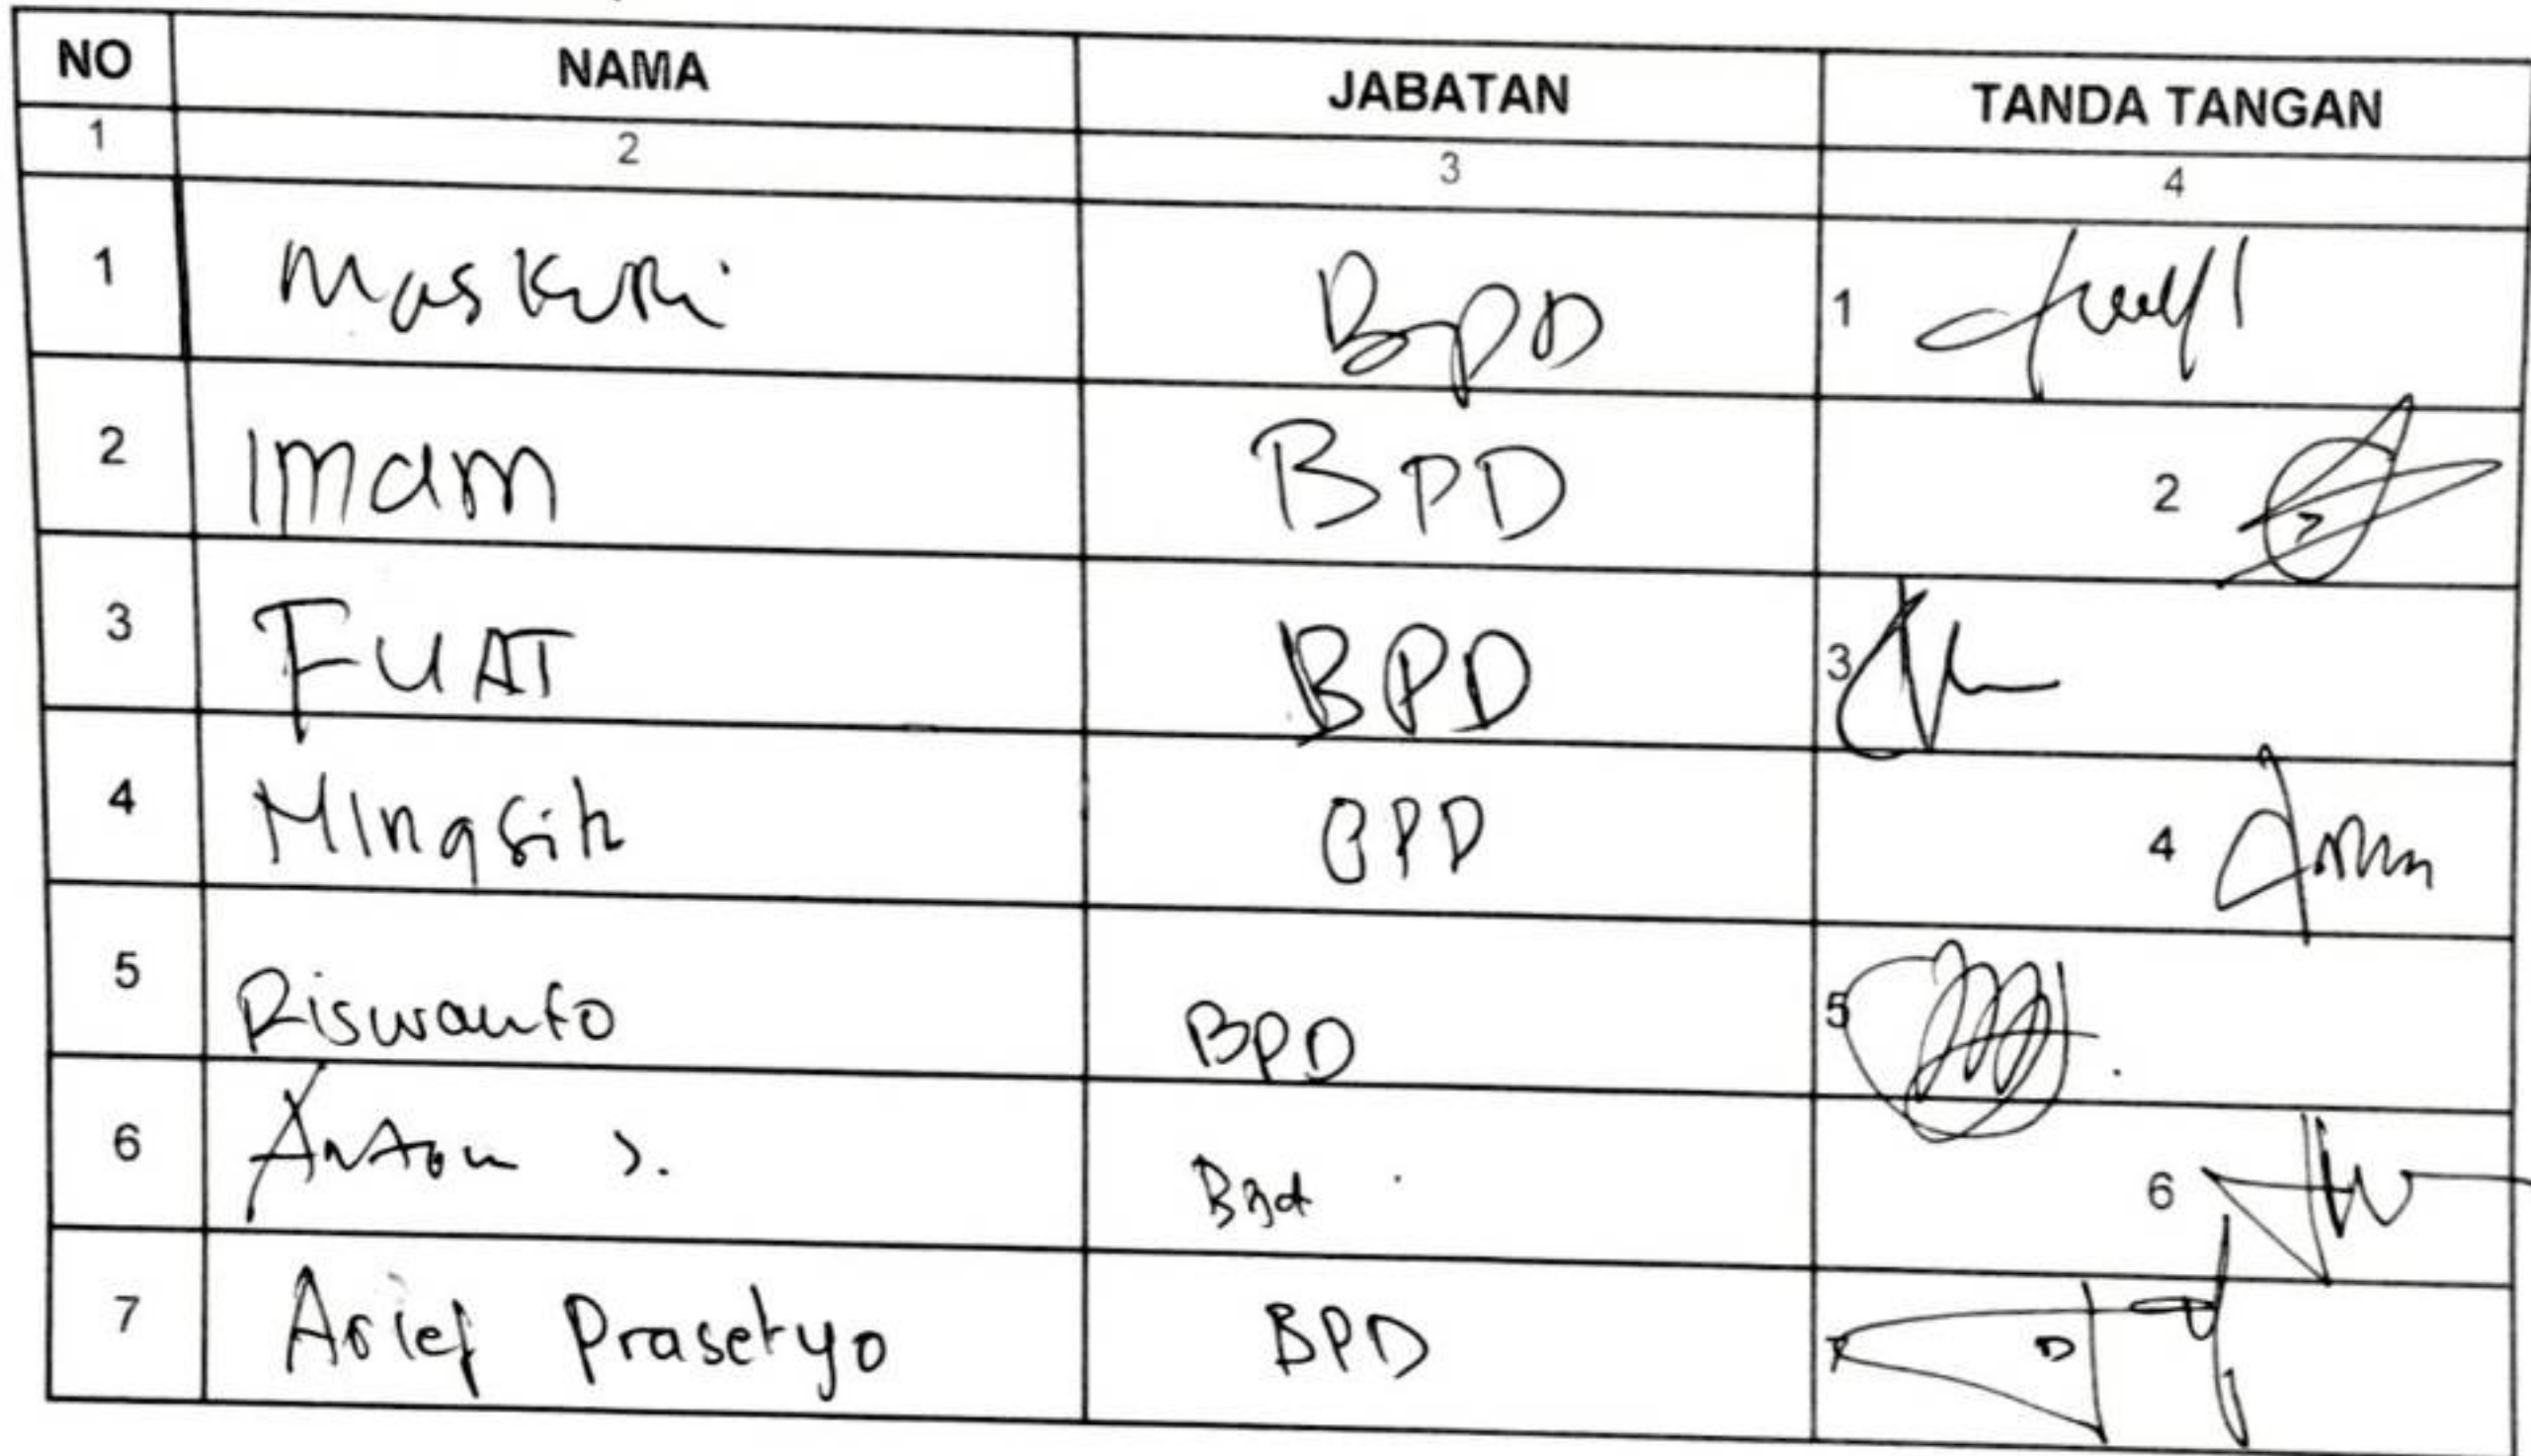 NO NAMA JABATAN TANDA TANGAN
1 2 3 4
1 Maskuri BPD 1
2 Imam BPD 2
3 FUAT BPD 3
4 Mingsih BPD 4
5 Riswanto BPD 5
6 Anton S. Bpd. 6
7 Arief Prasetyo BPD 7